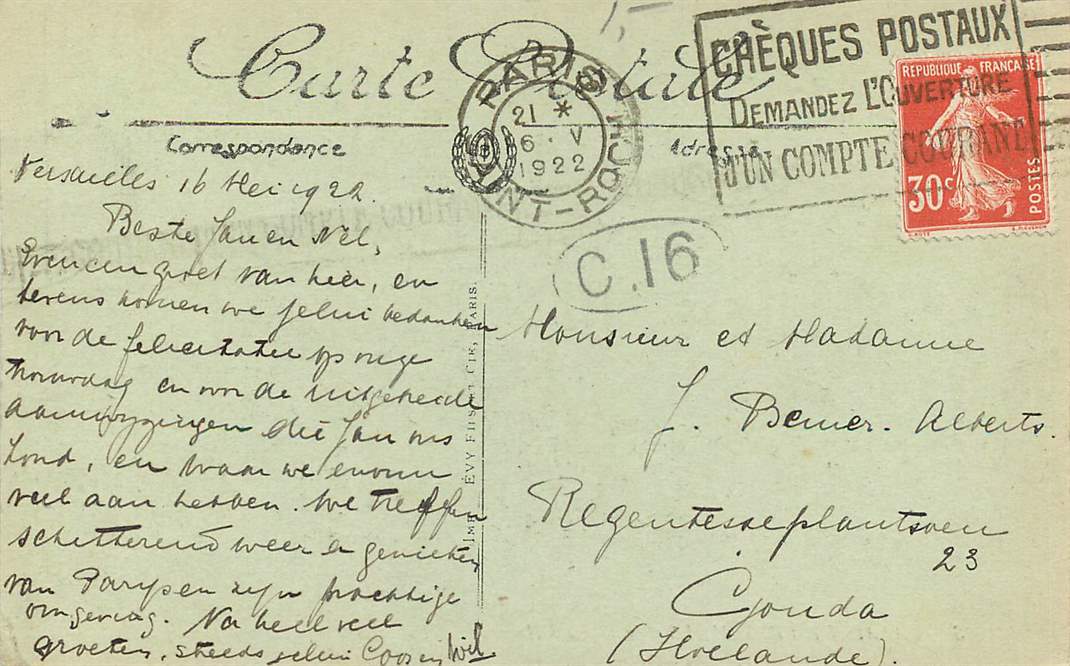 Carte Postale
Correspondance
Adresse
PARIS
SAINT-ROCH
21 *
6 · V
1922
CHÈQUES POSTAUX
DEMANDEZ L'OUVERTURE
D'UN COMPTE COURANT
RÉPUBLIQUE FRANÇAISE
30c
POSTES
C.16
IMP. LÉVY FILS ET CIE, PARIS.
Versailles 16 Mei 1922.
Beste Jan en Nel,
Even een groet van hier, en
tevens komen we jelui bedanken
voor de felicitatie op onze
trouwdag en voor de uitgebreide
aanwyzingen die Jan ons
zond, en waar we enorm
veel aan hebben. We treffen
schitterend weer en genieten
van Parys en zyn prachtige
omgeving. Na heel veel
groeten, steeds jelui Coos en Wil
Monsieur et Madame
J. Bemer-Alberts.
Regentesseplantsoen
23
Gouda
(Hollande).